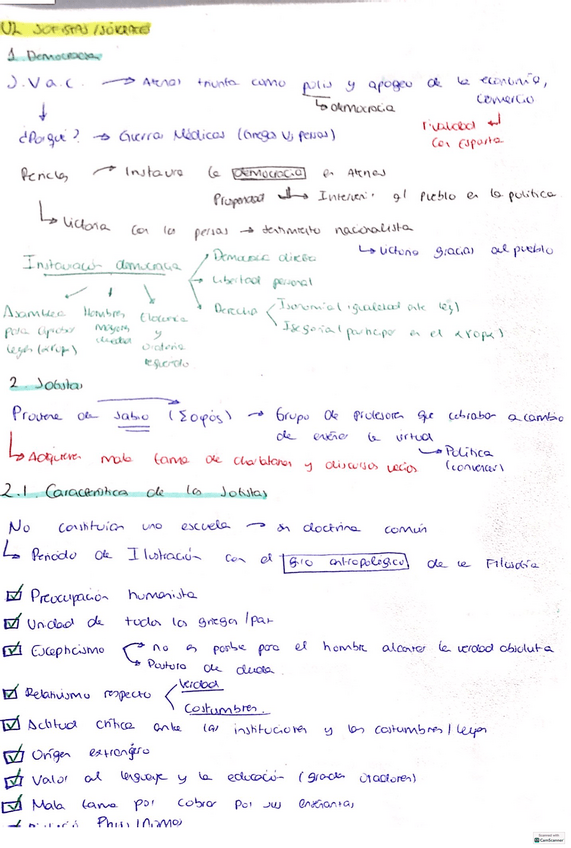 U2 SOFISTAS/SÓCRATES
1. Democracia
S.V a.C. → Atenas triunfa como polis y apogeo de la economía,
comercio
↳ democracia
rivalidad
con Esparta
¿Por qué? → Guerras Médicas (Griegos Vs persas)
Pericles → Instaura la democracia en Atenas
Propiedad → Intervenir el pueblo en la política
↳ Victoria con los persas → sentimiento nacionalista
↳ Victoria gracias al pueblo
Instauración democracia
Democracia directa
Libertad personal
Derecho
Isonomía (igualdad ante ley)
Isegoría (participar en el
Asamblea
para aprobar
leyes
Hombres
mayores
Elocuencia
y
oratoria
2. Sofistas
Proviene de sabio (Σοφός) → Grupo de profesores que cobraban a cambio
de enseñar la virtud
↳ Política
(convencer)
↳ Adquieren mala fama de charlatanes y discursos vacíos
2.1. Característica de los Sofistas
No constituían una escuela → sin doctrina común
↳ Periodo de Ilustración con el giro antropológico de la Filosofía
Preocupación humanista
Unidad de todos los griegos/paz
Escepticismo
no es posible para el hombre alcanzar la verdad absoluta
Postura de duda.
Relativismo respecto
Verdad
Costumbres.
Actitud crítica ante las instituciones y las costumbres/leyes
Origen extranjero
Valor al lenguaje y la educación (grandes oradores)
Mala fama por cobrar por sus enseñanzas
Physis/Nomos
Scanned with
CamScanner